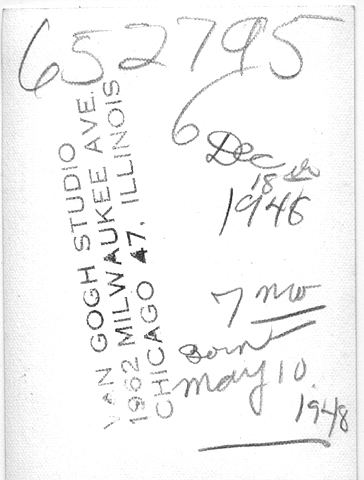 652795
6
VAN GOGH STUDIO
1962 MILWAUKEE AVE.
CHICAGO 47, ILLINOIS
Dec
18th
1948
7 mo
Born
May 10.
1948